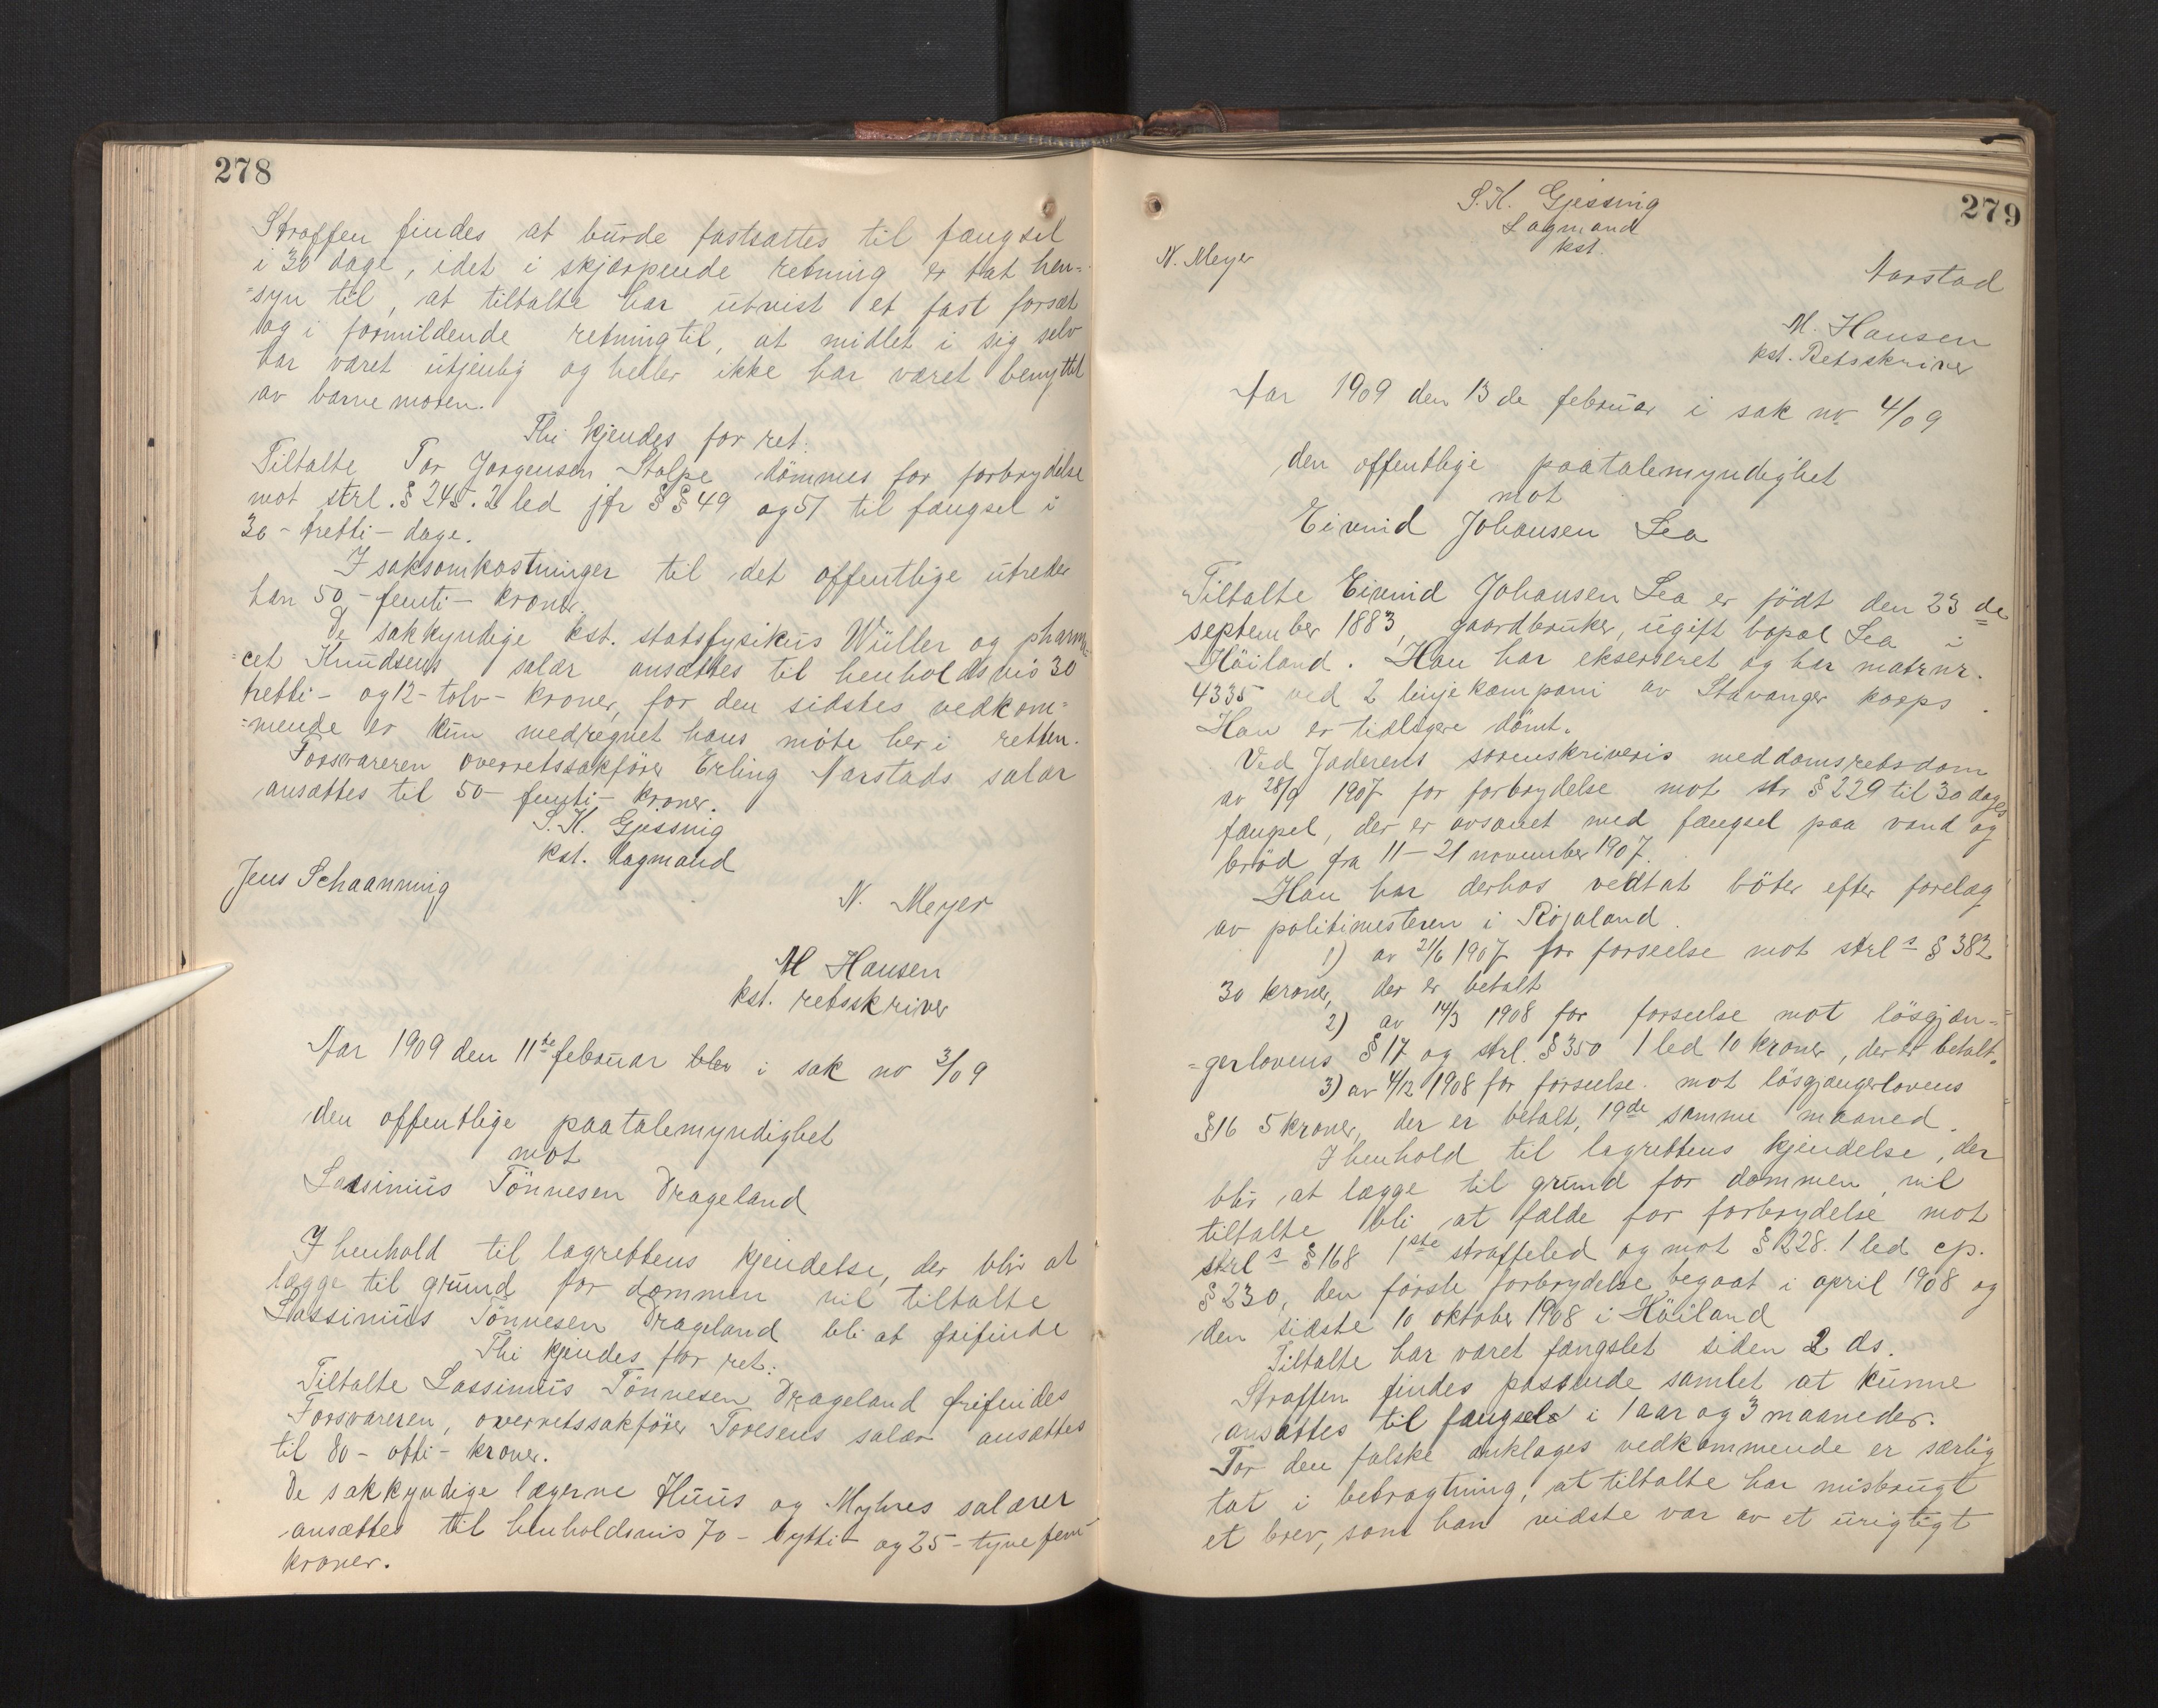 278
Straffen findes at burde fastsættes til fængsel
i 30 dage, idet i skjærpende retning er tat hen=
=syn til, at tiltalte har utvist et fast forsæt
og i formildende retning til, at midlet i sig selv
har været utjenlig og heller ikke har været benyttet
av barnemoren.
Thi kjendes for ret:
Tiltalte Tor Jørgensen Stolpe dömmes for forbrydelse
mot strl. § 245. 2 led jfr §§ 49 og 51 til fængsel i
30 - tretti - dage.
I saksomkostninger til det offentlige utreder
han 50 - femti - kroner.
De sakkyndige kst. statsfysikus Wüller og pharma=
=cet Knudsens salær ansættes til henholdsvis 30
tretti - og 12 - tolv - kroner, for den sidstes vedkom=
=mende er kun medregnet hans möte her i retten.
Forsvareren overretssakförer Erling Aarstads salær
ansættes til 50 - femti - kroner.
S. K. Gjessing
kst. lagmand
Jens Schaanning
N. Meyer
M Hansen
kst. retsskriver
Aar 1909 den 11te februar blev i sak no 3/09
den offentlige paatalemyndighet
mot
Lassinius Tönnesen Drageland
I henhold til lagrettens kjendelse, der blir at
lægge til grund for dommen vil tiltalte
Lassinius Tönnesen Drageland bli at frifinde
Thi kjendes for ret:
Tiltalte Lassinius Tönnesen Drageland frifindes
Forsvareren, overretssakförer Toresens salær ansættes
til 80 - otti - kroner.
De sakkyndige lægerne Huus og Myhres salærer
ansættes til henholdsvis 70 - sytti - og 25 - tyvefem
kroner.
279
S. K. Gjessing
Lagmand
kst.
N. Meyer
Aarstad
M. Hansen
kst. Retsskriver
Aar 1909 den 13de februar i sak no 4/09
den offentlige paatalemyndighet
mot
Eivind Johansen Lea
Tiltalte Eivind Johansen Lea er födt den 23de
september 1883, gaardbruker, ugift bopæl Lea i
Höiland. Han har eksersert og har matrnr.
4335 ved 2 linjekompani av Stavanger korps.
Han er tidligere dömt.
Ved Jæderens sorenskriveris meddomsretsdom
av 28/9 1907 for forbrydelse mot str § 229 til 30 dages
fængsel, der er avsonet med fængsel paa vand og
bröd fra 11 - 21 november 1907.
Han har derhos vedtat böter efter forelæg
av politimesteren i Rogaland
1) av 21/6 1907 for forseelse mot strls § 382
30 kroner, der er betalt
2) av 14/3 1908 for forseelse mot lösgjæn=
=gerlovens § 17 og strl. § 350 1 led 10 kroner, der er betalt.
3) av 4/12 1908 for forseelse mot lösgjængerlovens
§ 16 5 kroner, der er betalt, 19de samme maaned.
I henhold til lagrettens kjendelse, der
blir at lægge til grund for dommen, vil
tiltalte bli at fælde for forbrydelse mot
strls § 168 1ste straffeled og mot § 228. 1 led cp.
§ 230, den förste forbrydelse begaat i april 1908 og
den sidste 10 oktober 1908 i Höiland
Tiltalte har været fængslet siden 2 ds.
Straffen findes passende samlet at kunne
ansættes til fængsel i 1 aar og 3 maaneder.
For den falske anklages vedkommende er særlig
tat i betragtning, at tiltalte har misbrugt
et brev, som han vidste var av et urigtigt